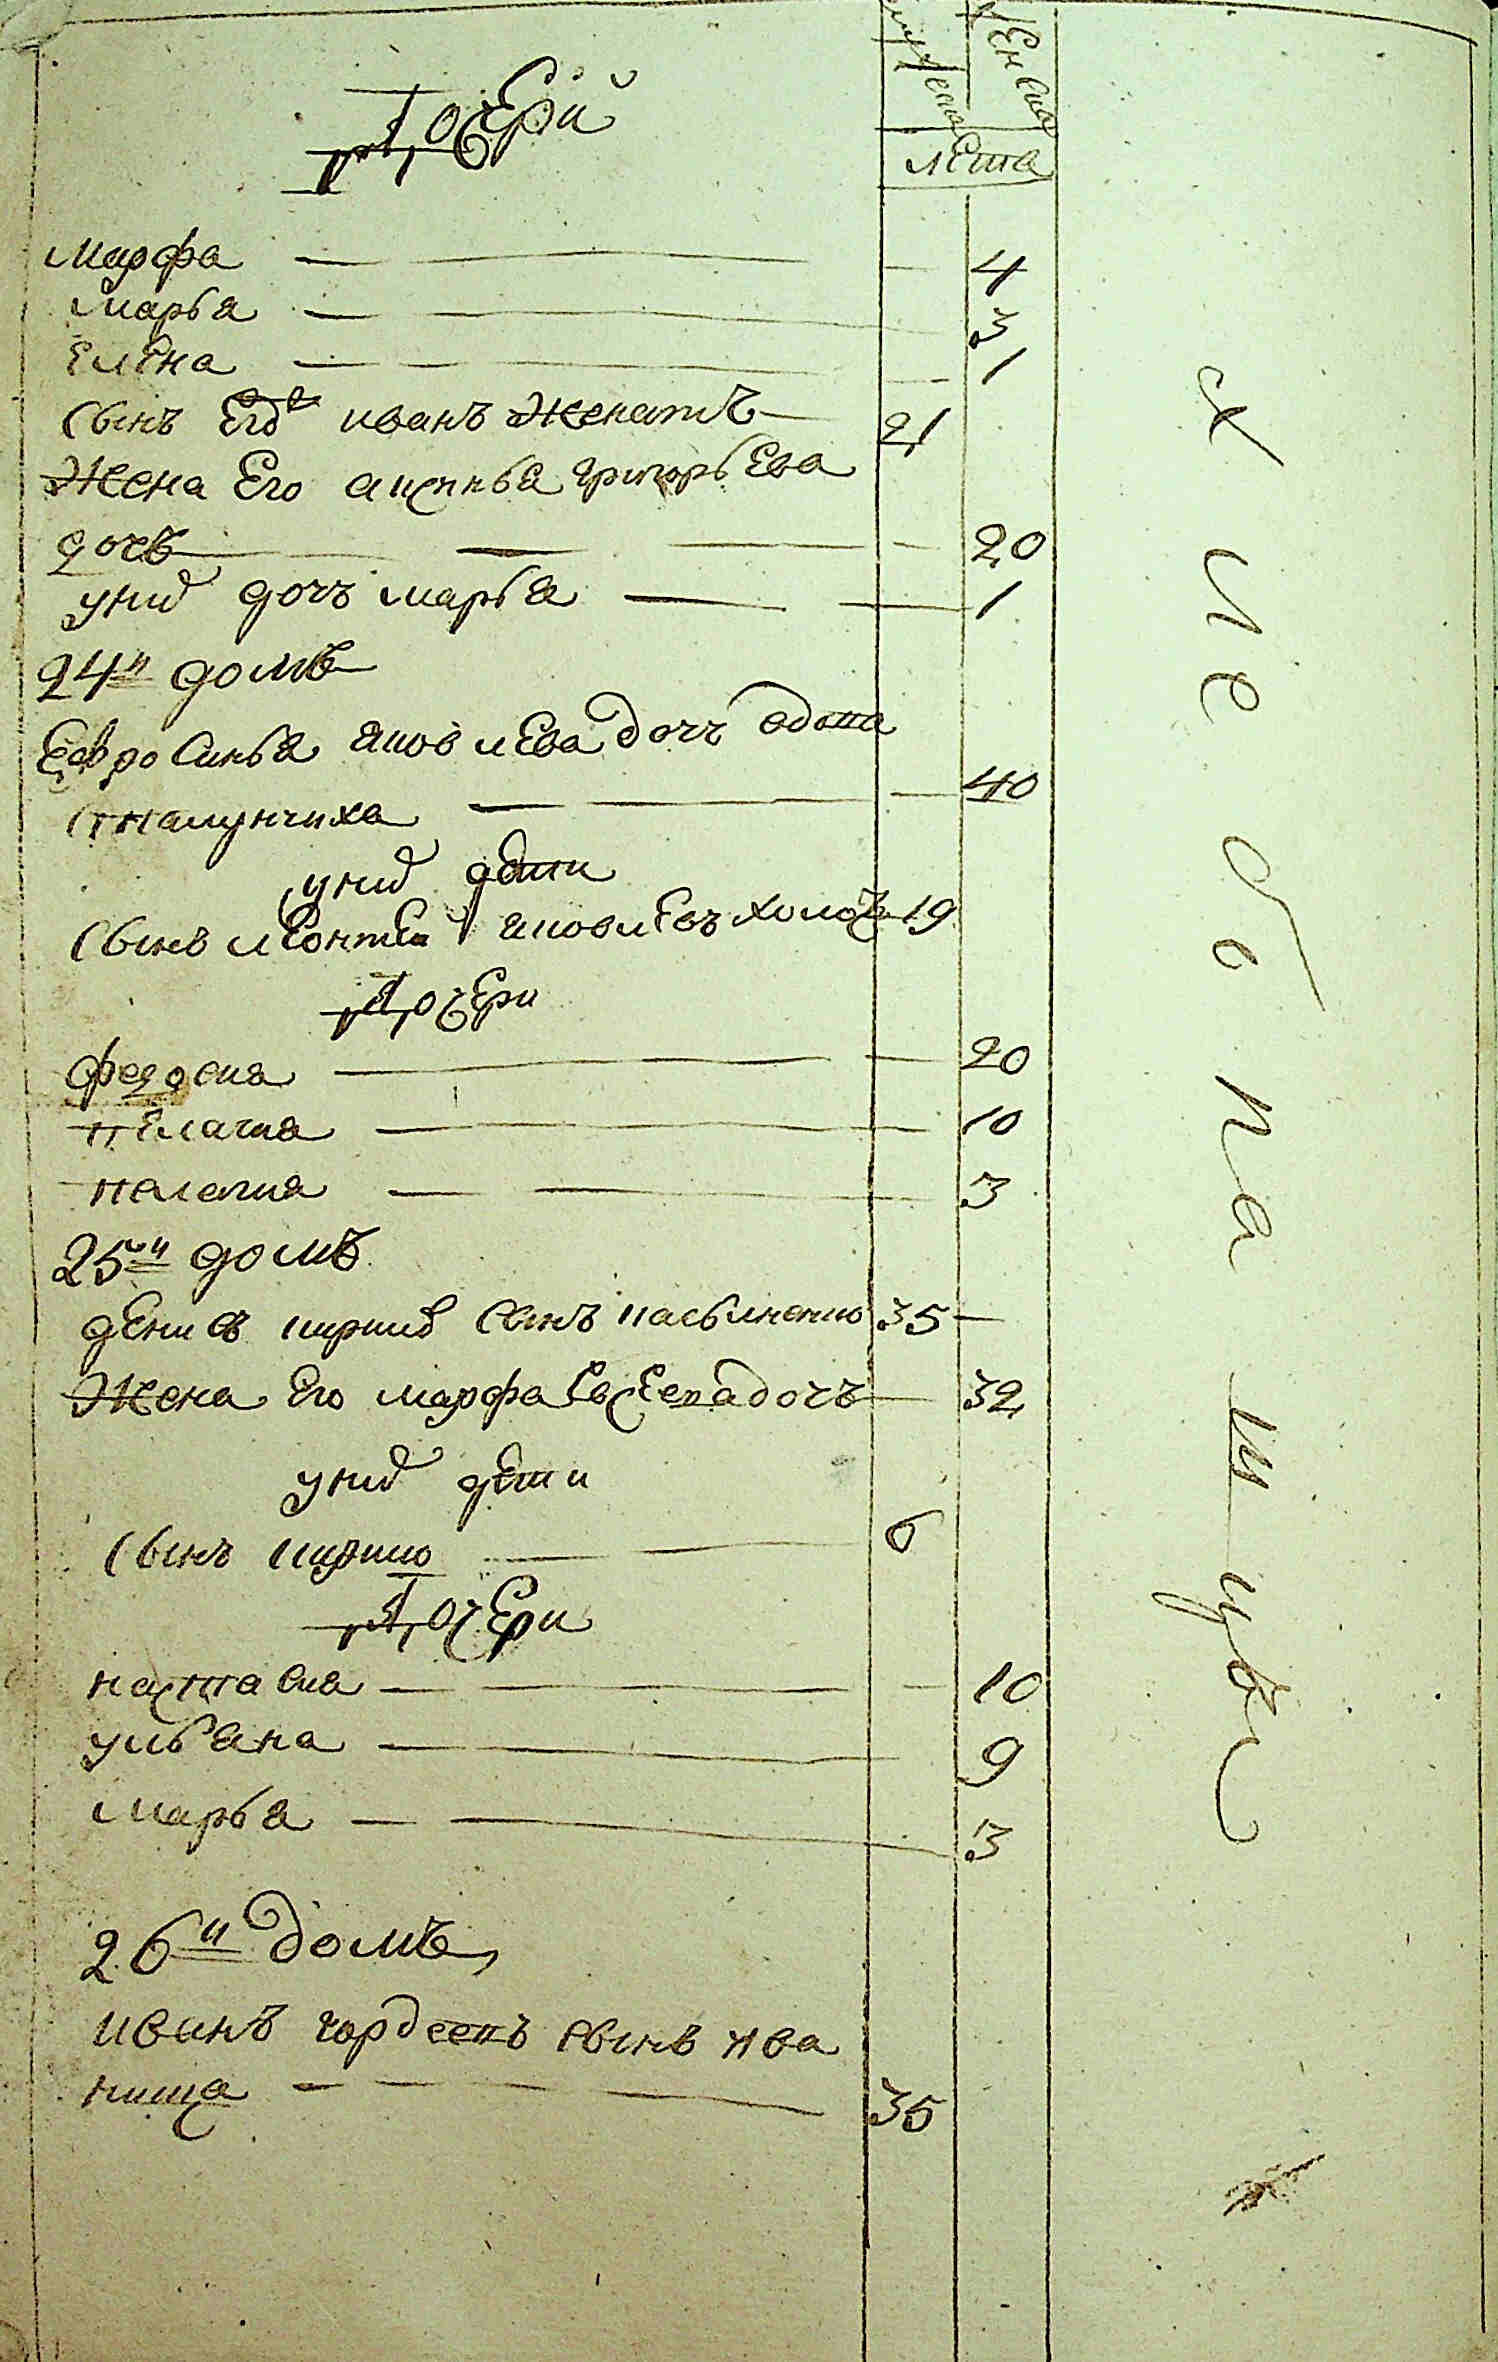 мужеска
женска
лета
Дочерй
марфа 4
марья 3
елена 1
сынъ его иванъ женатъ 21
жена его аксинья григорьева
дочь 20
у них дочъ марья 1
24й домъ
Ефросинья яковлева дочъ вдова
40
у них дети
сынъ леонтей яковлевъ холостъ 19
Дочери
федосия 20
пелагия 10
палагия 3
25й домъ
денис кирилов сынъ 35
жена его марфа евсеева дочъ 32
у них дети
сынъ кирило 6
Дочери
настасия 10
ульяна 9
марья 3
26й домъ
иванъ гордеевъ сынъ ива
нища 35
хлебопашцы